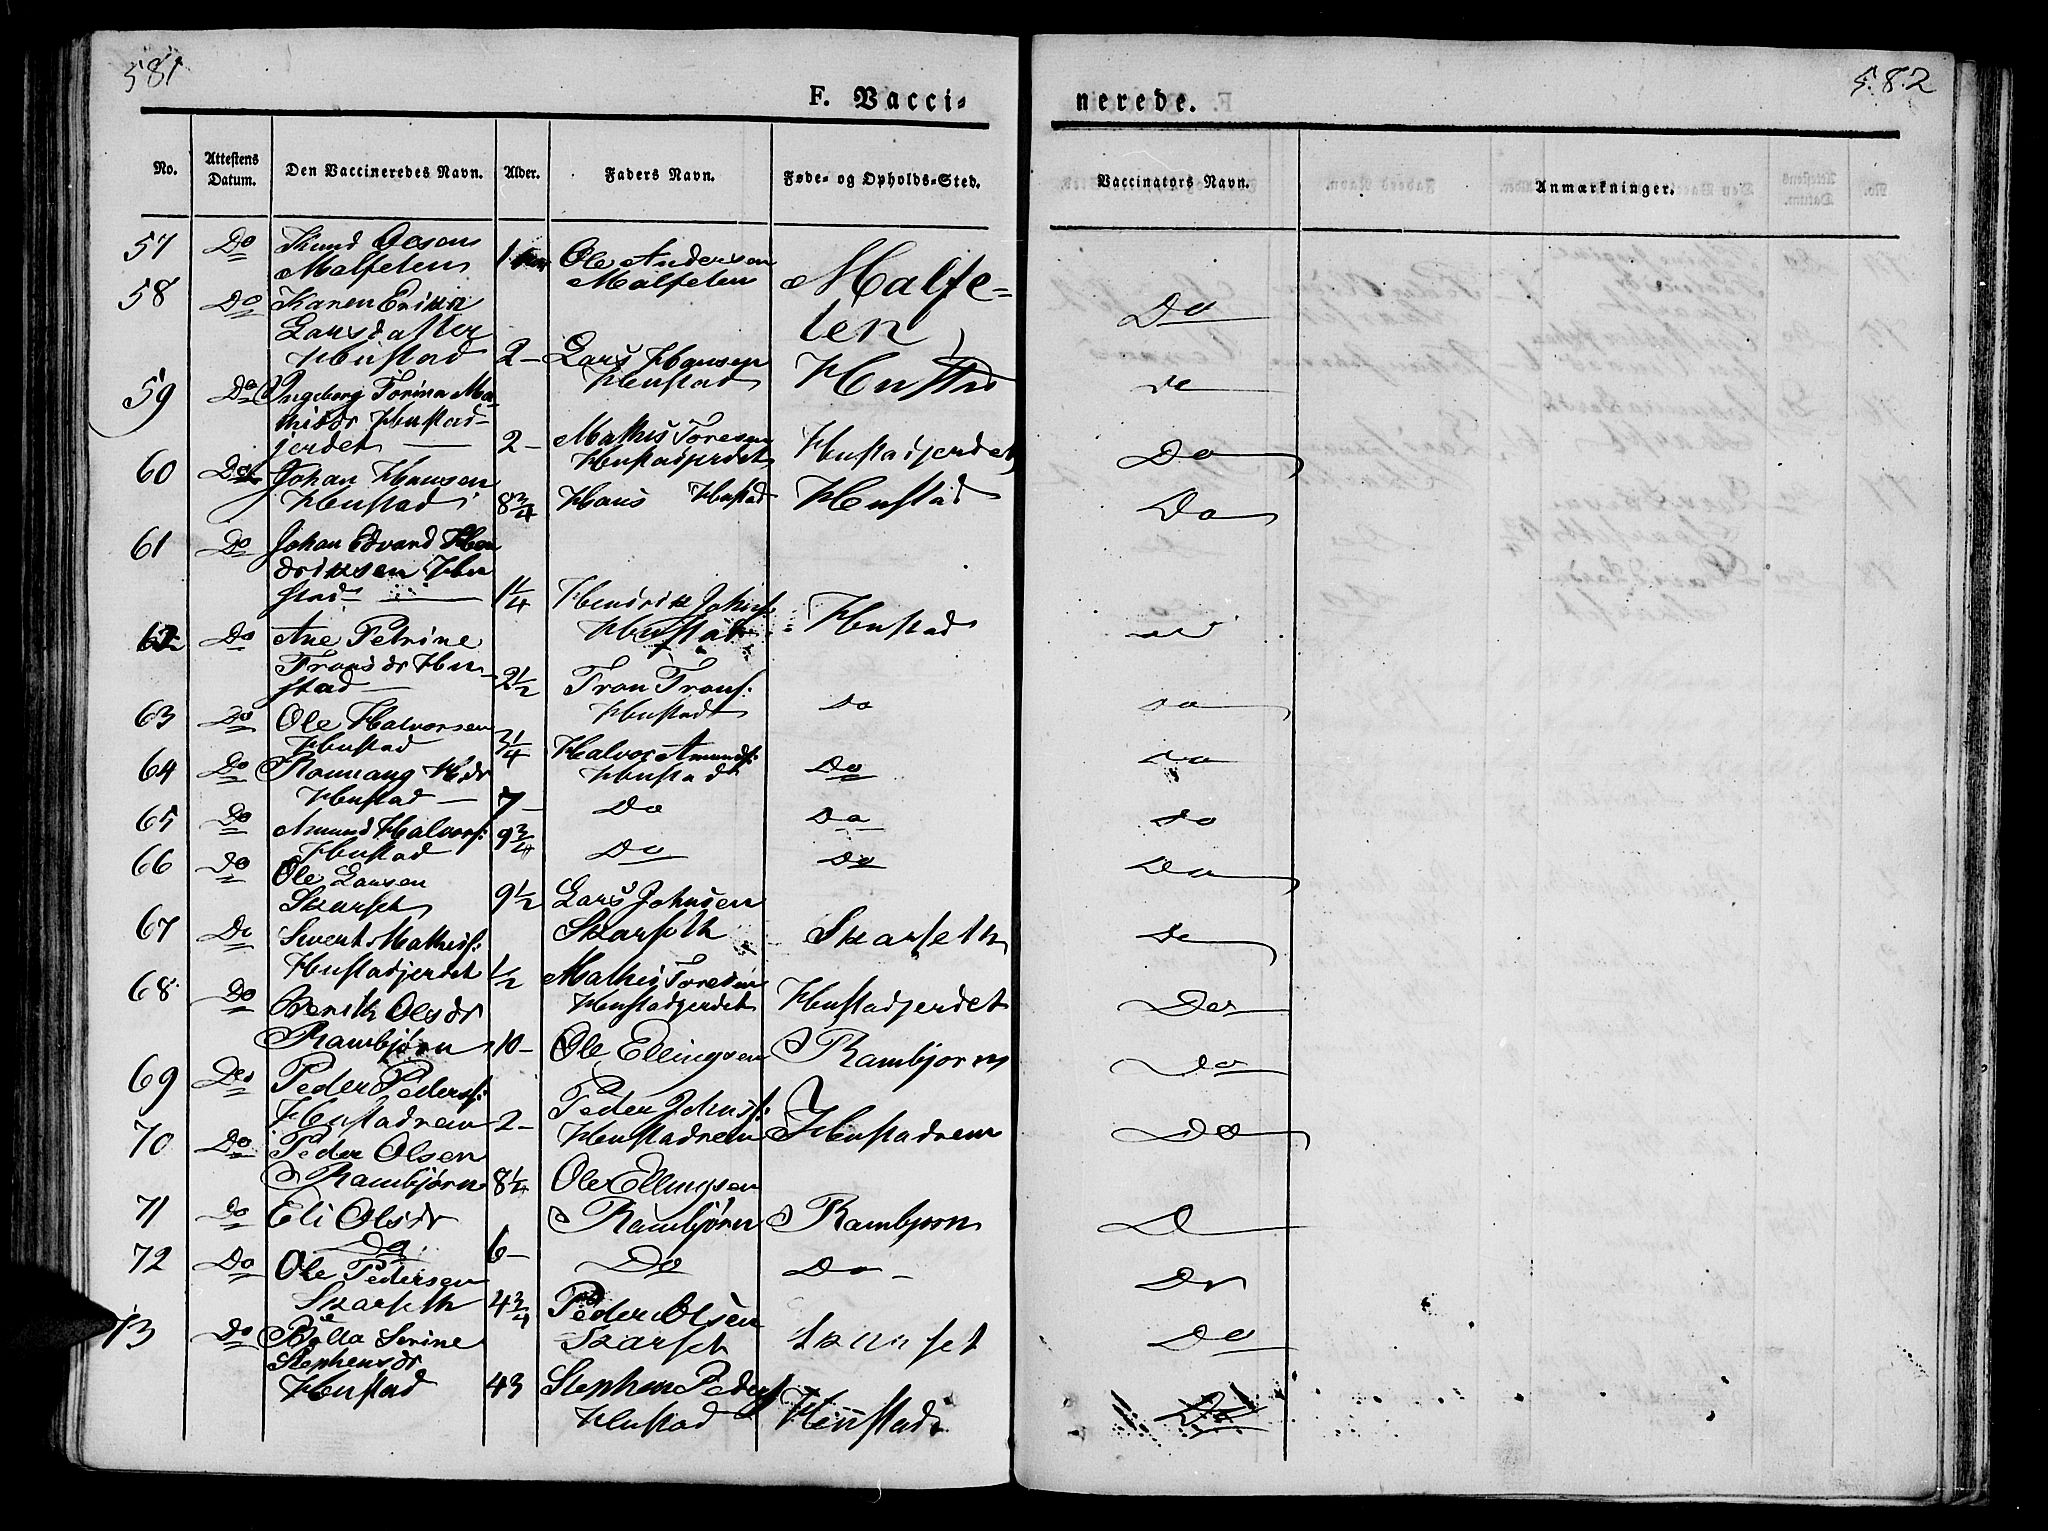 581
582
F. Vacci-
nerede.
No.
Attestens Datum.
Den Vaccineredes Navn.
Alder.
Faders Navn.
Føde- og Opholds-Sted.
Vaccinators Navn.
Anmærkninger.
57 Do Knud Olsen 1 Ole Andersen Malfe-
Malfeten Malfeten ten
58 Do Karen Erikka Do
Larsdatter
Hustad 2- Lars Hansen Hustad
Hustad
59 Do Ingeborg Torina Ma- do
thisdr Hustad-
jerdet 2- Mathis Toresen Hustadjerdet Do
Hustadjerdet
60 Do Johan Hansen
Hustad 8 3/4 Hans Hustad Hustad Do
61 Do Johan Edvard Hen
driksen Hu
stad 1 1/4 Hendrik Johnss: Hustad do
Hustad
62 Do Ane Petrine
Fransdr Hu-
stad 2 1/2 Fran Frans: do do
Hustad
63 Do Ole Halvorsen
Hustad 3 1/4 Halvor Amunds: Do do
Hustad
64 Do Ronnaug Hdr
Hustad 7- Do Do do
65 Do Amund Halvors: 9 3/4
Hustad Do Do Do
66 Do Ole Larsen
Skarset 9 1/2 Lars Johnsen
Skarseth Skarseth Do
67 Do Sivert Mathiss:
Hustadjerdet 1/2 Mathis Toresen Hustadjerdet Do
Hustadjerdet
68 Do Berith Olsdr
Rambjørn 10- Ole Ellingsen Rambjorn Do
69 Do Peder Peders:
Hustadrem 2- Peder Johns: Hustadrem Do
Hustadrem
70 Do Peder Olsen
Rambjørn 8 1/4 Ole Ellingsen
Rambjørn Rambjorn D
71 Do Eli Olsdr
Do 6- Do Do- Do
72 Do Ole Pedersen
Skarseth 4 3/4 Peder Olsen Skarset Do
Skarset
73 Do Bolla Serine
Stephensdr
Hustad 43 Stephen Peders Hustad Do
Hustad